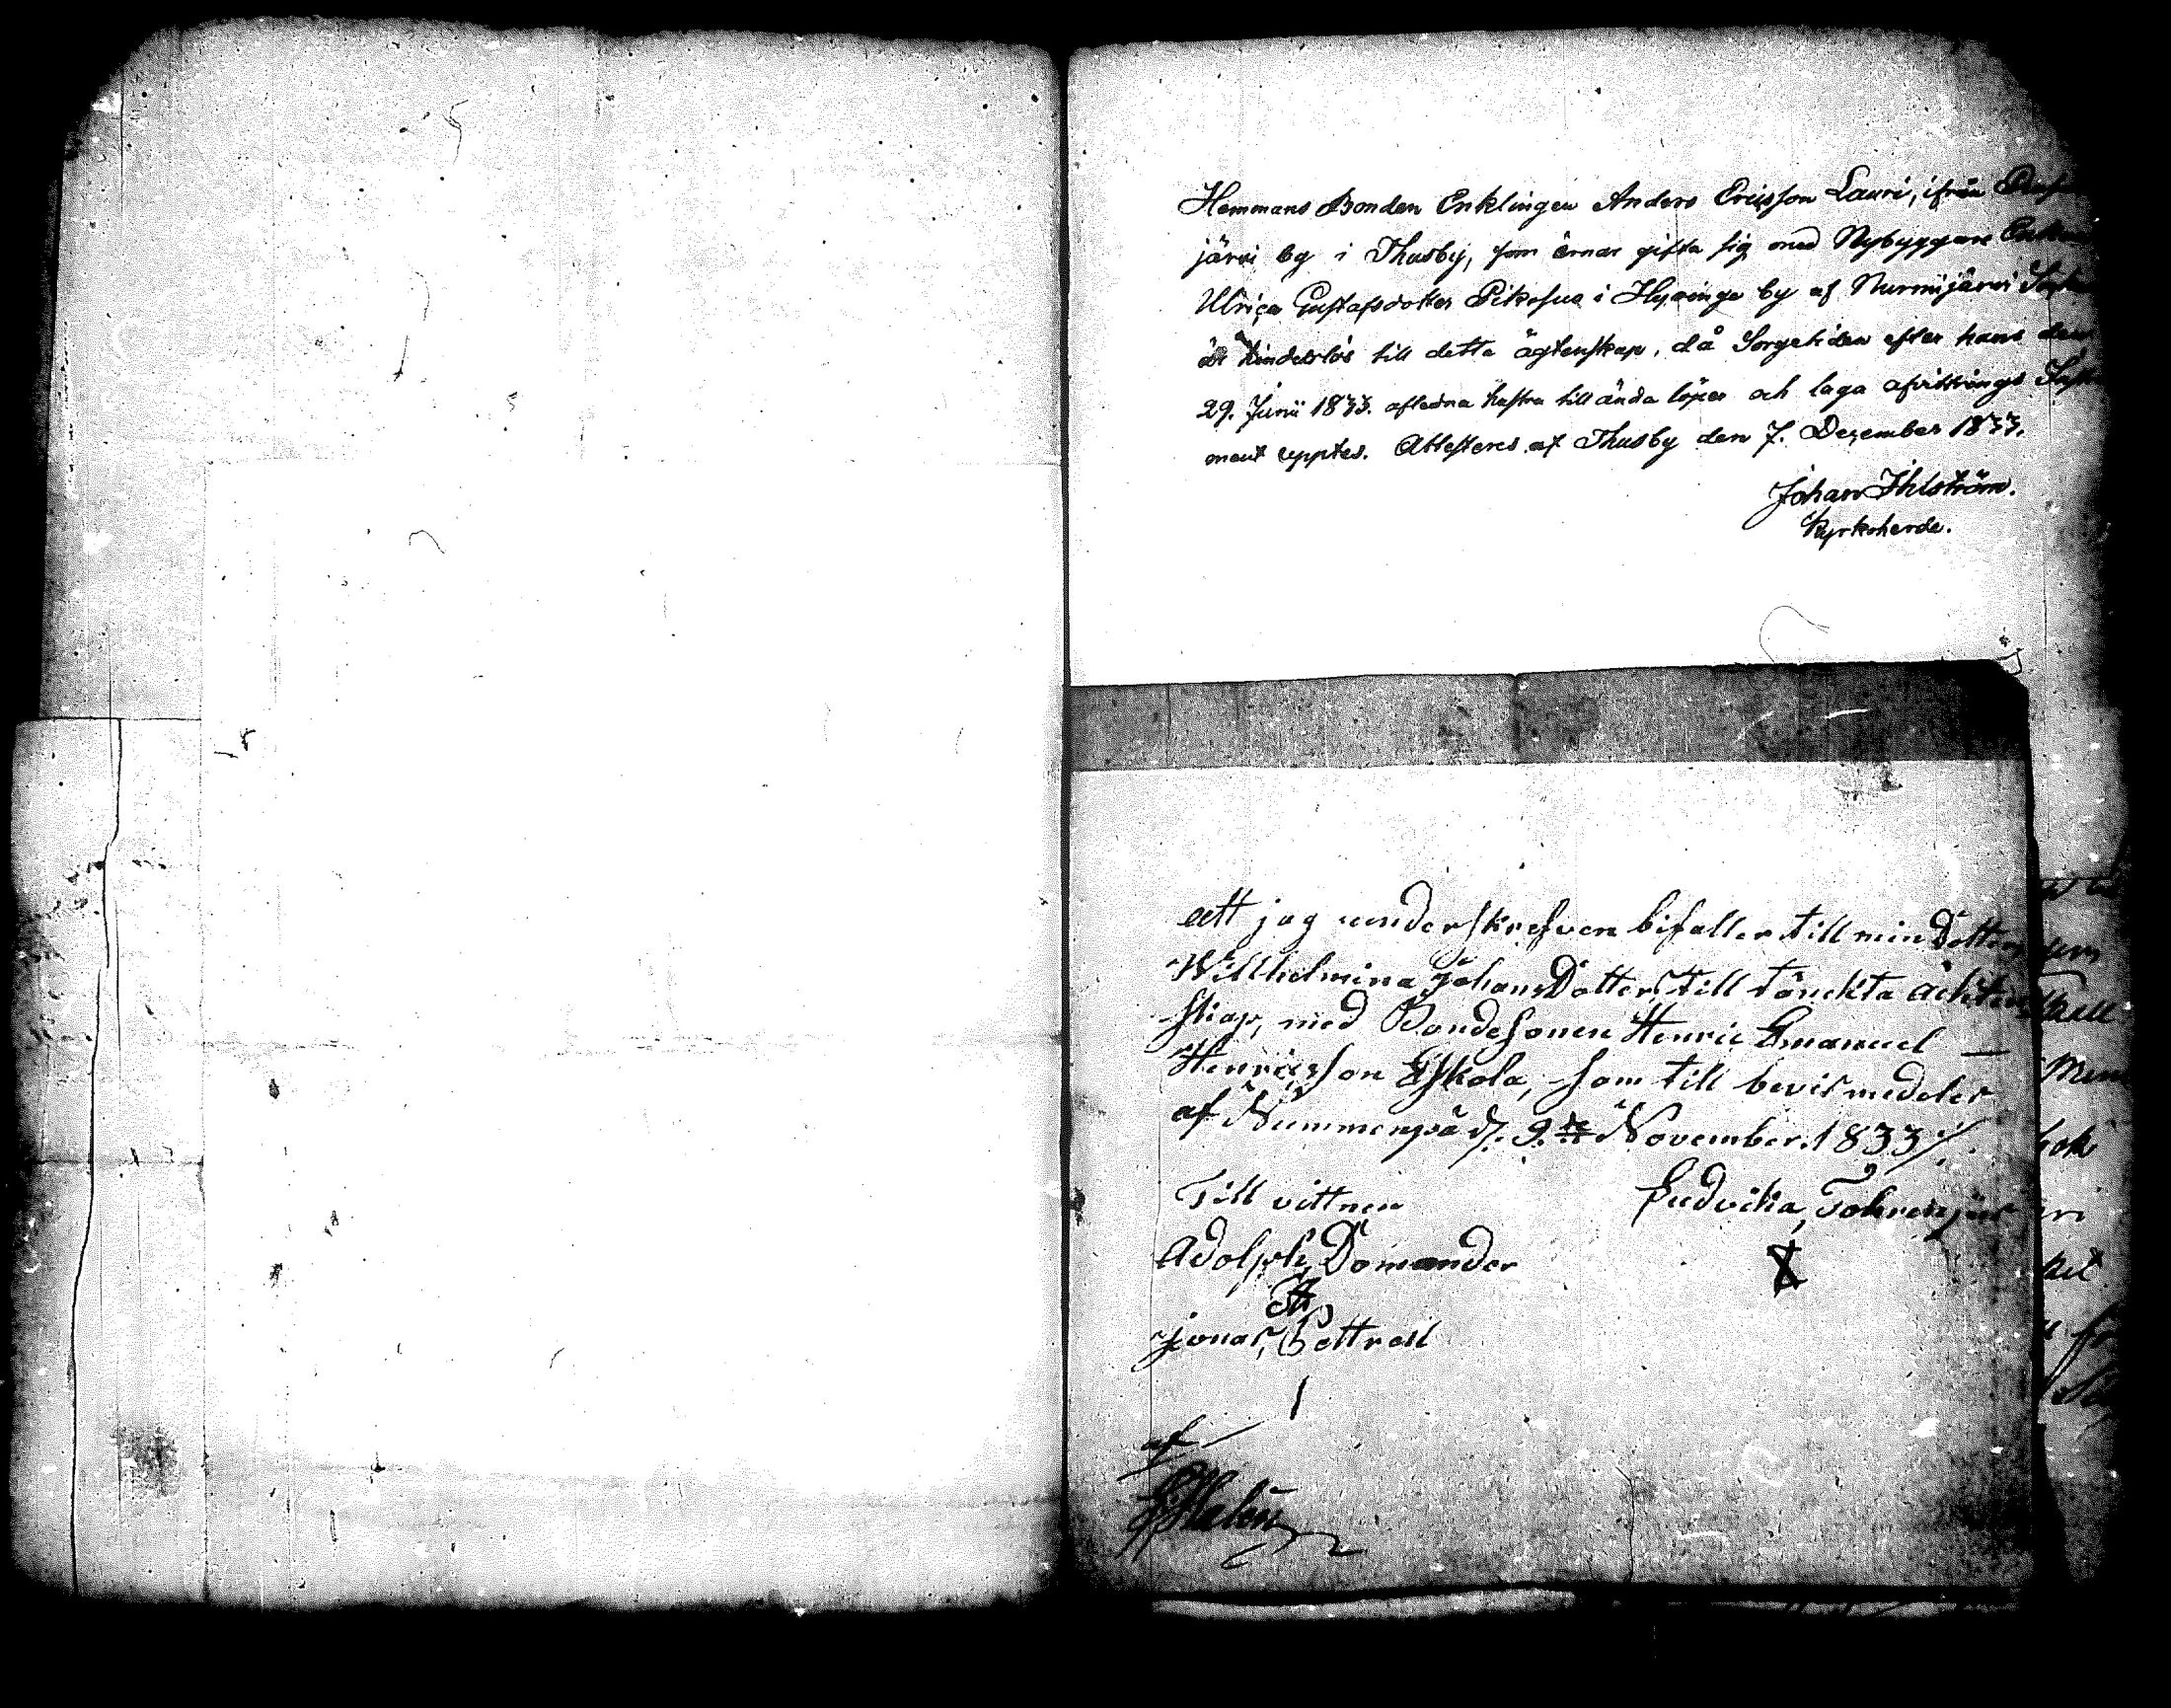 Hemmans Bonden Enklingen Anders Ericsson Lauri, ifrån
järvi by i Thusby, som ärnar gifta sig med Nybyggare
Ulrica Gustafsdotter Pitkesuo i Hyvinge by af Nurmijärvi
är hinderlös till detta ägtenskap, då Sorgetiden efter hans den
29. Junii 1833. afledna hustru till ända löper och laga afvittrings
ment upptes. Attesteres af Thusby den 7. December 1833.
Johan Ihlström.
Kyrkoherde.
att jag underskrefven bifaller till min Dotter
Willhelmina JohansDotter, till tänckta ächten
skap, med Bondesonen Henric Emanuel —
Henricsson Eskola, som till bevis medeles
af Nummenpä d. 9:de November. 1833
Till vittnen
Ludvika
Adolph, Domander
Jonas, Pettrell
af